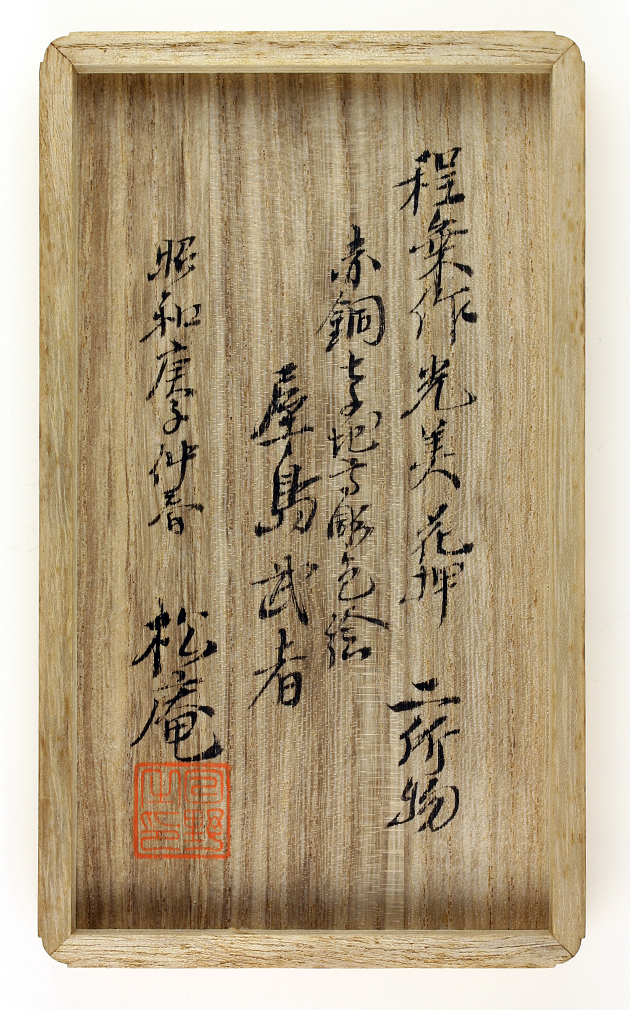 程乗作 光美 花押 二所物
赤銅七子地高彫色絵
屋島武者
昭和庚子仲春 松庵